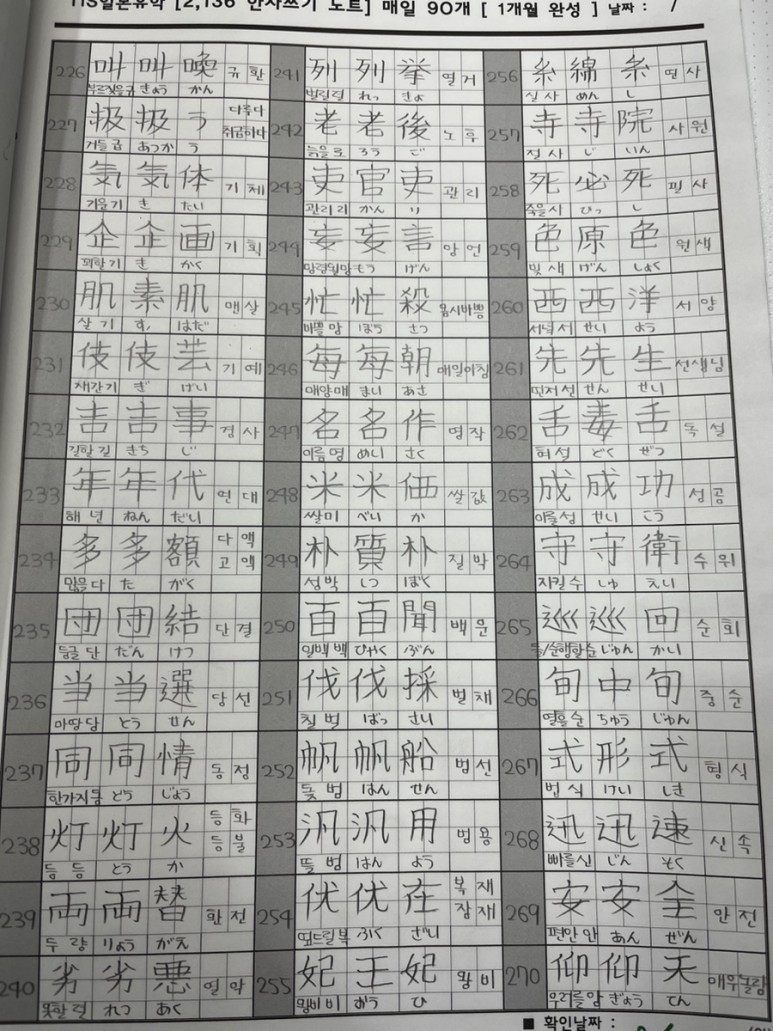 [2,136 한자쓰기 노트] 매일 90개 [ 1개월 완성 ] 날짜 : /
226 叫 叫 喚 규 환
부르짖을규 きょう かん
227 扱 扱 う 다루다 취급하다
거둘 급 あつか う
228 気 気 体 기 체
기운 기 き たい
229 企 企 画 기 획
꾀할 기 き かく
230 肌 素 肌 맨 살
살 기 す はだ
231 伎 伎 芸 기 예
재간 기 ぎ げい
232 吉 吉 事 경 사
길할 길 きち じ
233 年 年 代 연 대
해 년 ねん だい
234 多 多 額 다 액 고 액
많을 다 た がく
235 団 団 結 단 결
둥글 단 だん けつ
236 当 当 選 당 선
마땅 당 とう せん
237 同 同 情 동 정
한가지 동 どう じょう
238 灯 灯 火 등 화 등 불
등 등 とう か
239 両 両 替 환 전
두 량 りょう がえ
240 劣 劣 悪 열 악
못할 렬 れつ あく
241 列 列 挙 열 거
벌릴 렬 れっ きょ
242 老 老 後 노 후
늙을 로 ろう ご
243 吏 官 吏 관 리
관리 리 かん り
244 妄 妄 言 망 언
망령될 망 もう げん
245 忙 忙 殺 몹시바쁨
바쁠 망 ぼう さつ
246 毎 毎 朝 매일아침
매양 매 まい あさ
247 名 名 作 명 작
이름 명 めい さく
248 米 米 価 쌀 값
쌀 미 べい か
249 朴 質 朴 질 박
성 박 しつ ぼく
250 百 百 聞 백 문
일백 백 ひゃく ぶん
251 伐 伐 採 벌 채
칠 벌 ばっ さい
252 帆 帆 船 범 선
돛 범 はん せん
253 汎 汎 用 범 용
뜰 범 はん よう
254 伏 伏 在 복 재 잠 재
엎드릴 복 ふく ざい
255 妃 王 妃 왕 비
왕비 비 おう ひ
256 糸 綿 糸 면 사
실 사 めん し
257 寺 寺 院 사 원
절 사 じ いん
258 死 必 死 필 사
죽을 사 ひっ し
259 色 原 色 원 색
빛 색 げん しょく
260 西 西 洋 서 양
서녘 서 せい よう
261 先 先 生 선생님
먼저 선 せん せい
262 舌 毒 舌 독 설
혀 설 どく ぜつ
263 成 成 功 성 공
이룰 성 せい こう
264 守 守 衛 수 위
지킬 수 しゅ えい
265 巡 巡 回 순 회
돌/순행할순 じゅん かい
266 旬 中 旬 중 순
열흘 순 ちゅう じゅん
267 式 形 式 형 식
법 식 けい しき
268 迅 迅 速 신 속
빠를 신 じん そく
269 安 安 全 안 전
편안 안 あん ぜん
270 仰 仰 天 매우놀람
우러를 앙 ぎょう てん
■ 확인날짜 :